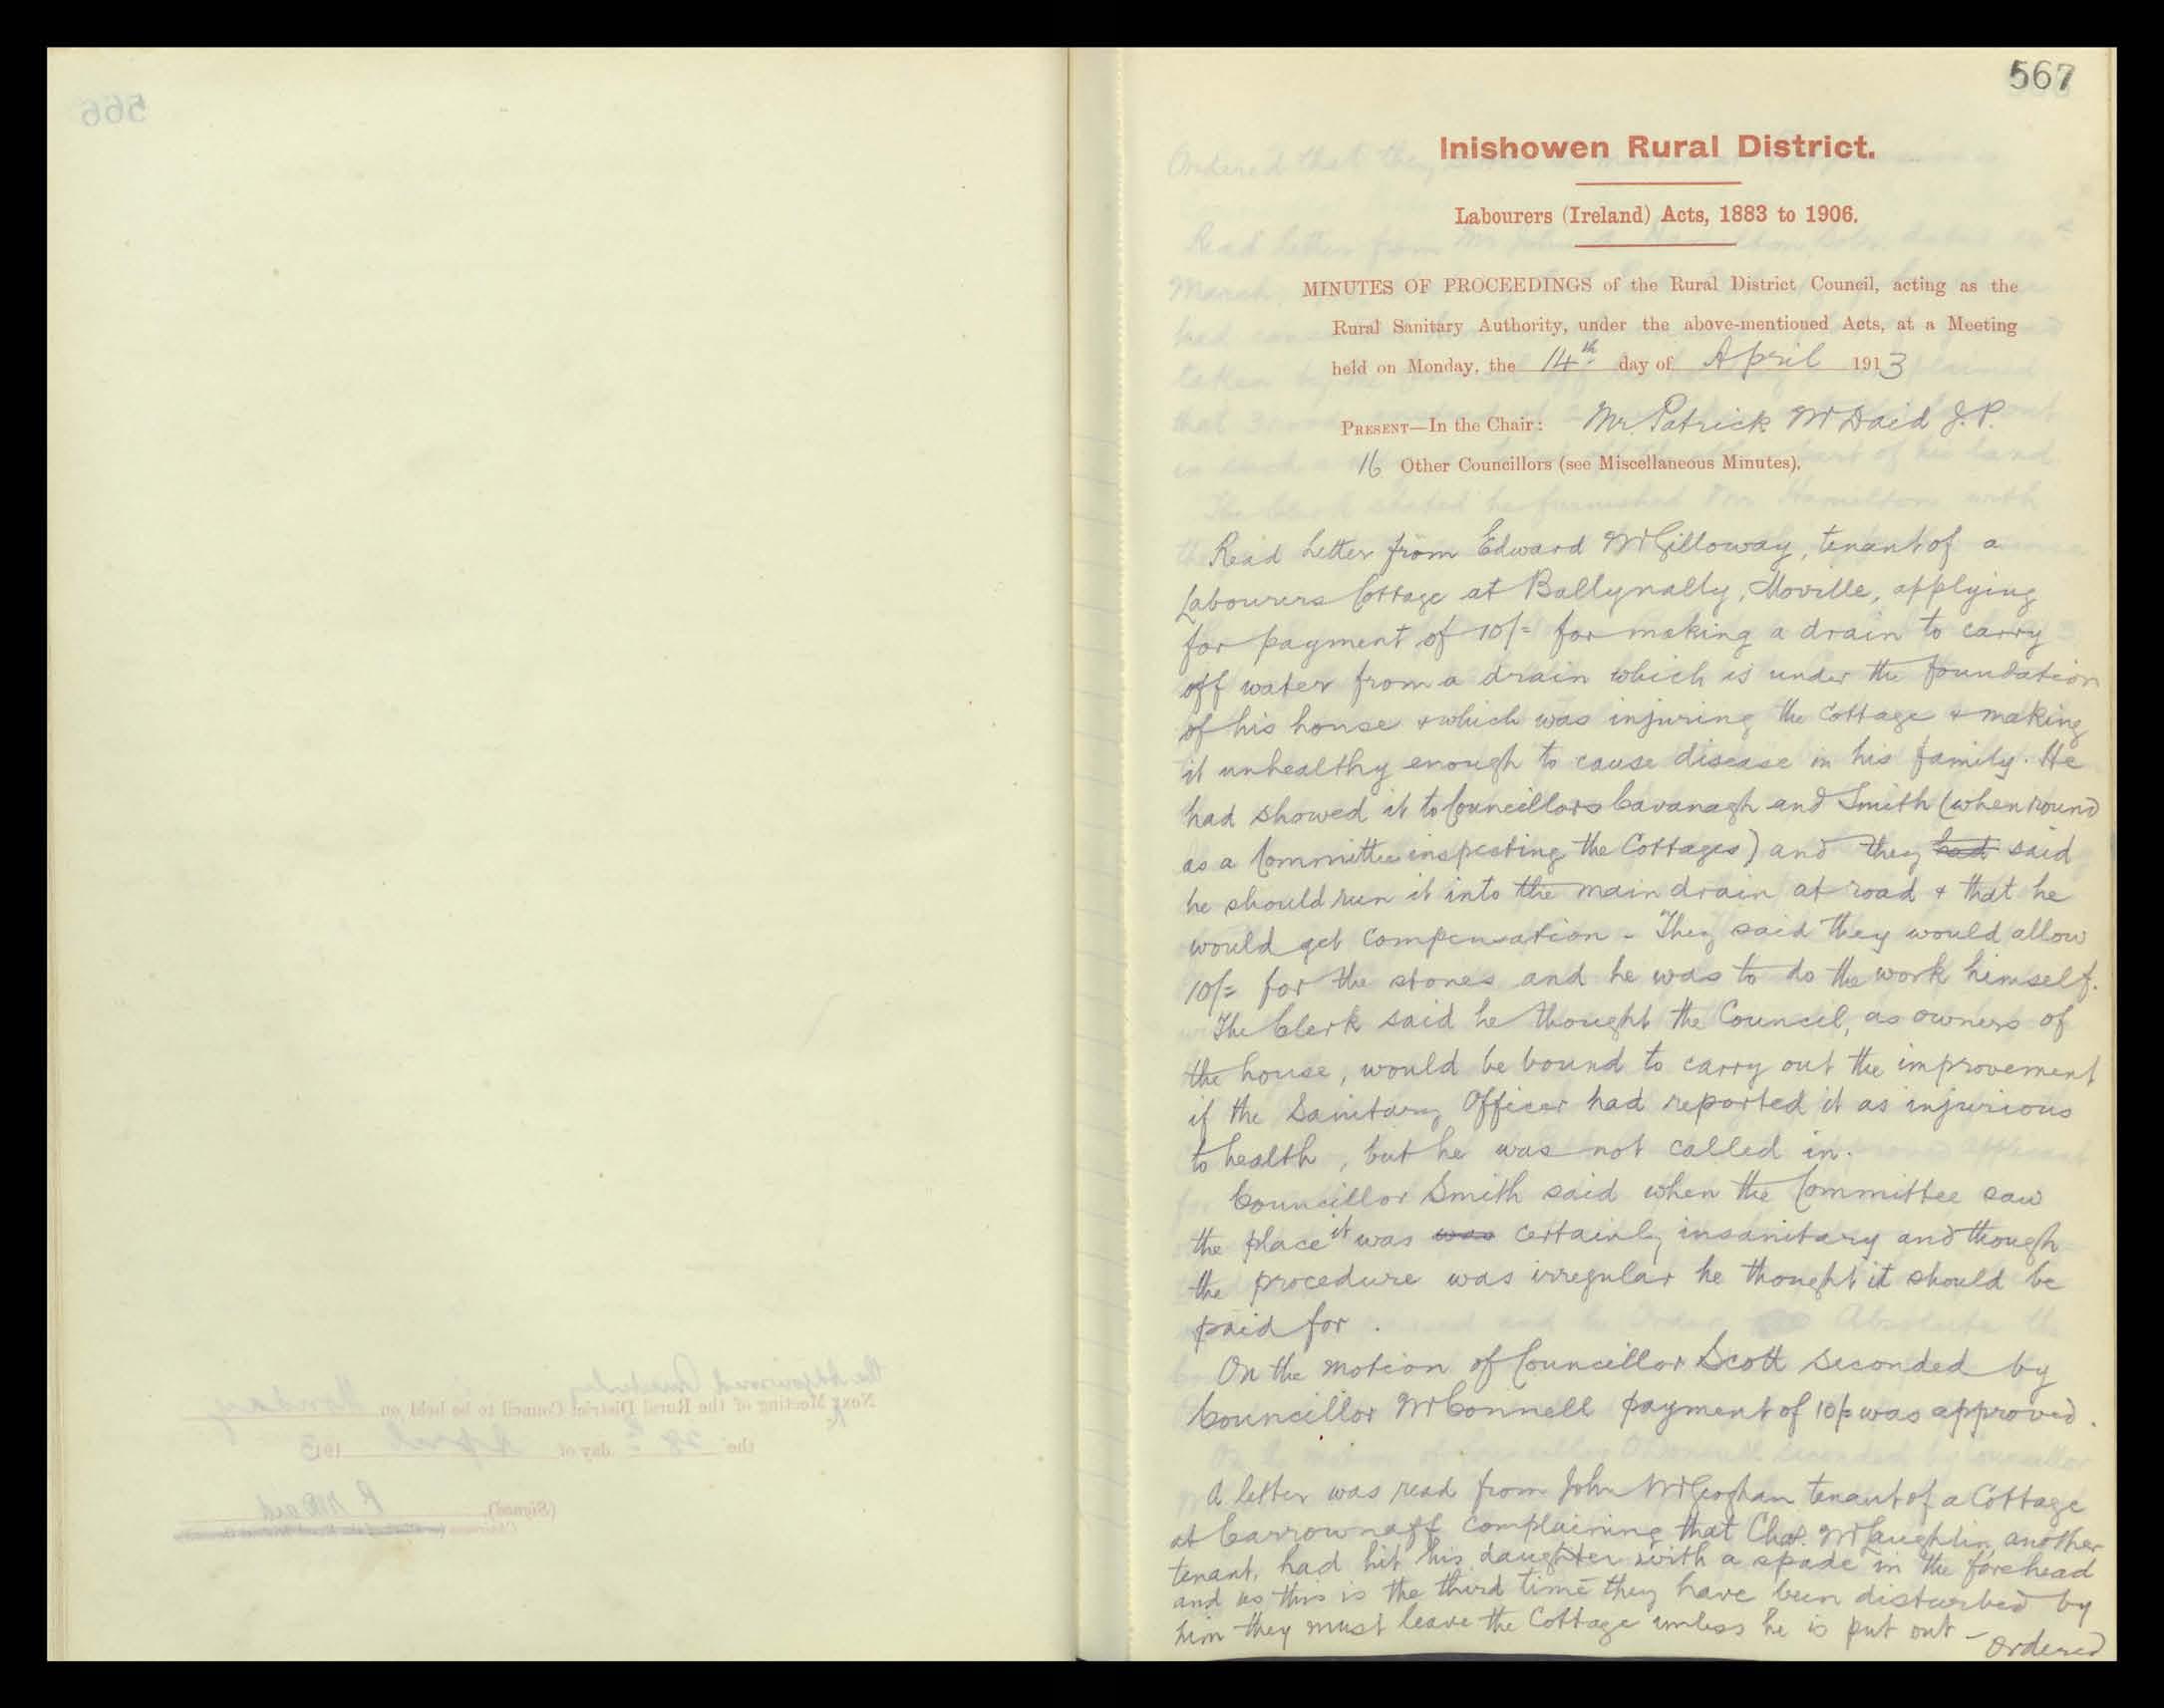 567
Inishowen Rural District.
Labourers (Ireland) Acts, 1883 to 1906.
MINUTES OF PROCEEDINGS of the Rural District Council, acting as the
Rural Sanitary Authority, under the above-mentioned Acts, at a Meeting
held on Monday, the 14th day of April 1913
PRESENT—In the Chair: Mr. Patrick McDaid J.P.
16 Other Councillors (see Miscellaneous Minutes).
Read Letter from Edward McGilloway, tenant of a
Labourers Cottage at Ballynally, Moville, applying
for payment of 10/= for making a drain to carry
off water from a drain which is under the foundation
of his house & which was injuring the Cottage & making
it unhealthy enough to cause disease in his family. He
had showed it to Councillors Cavanagh and Smith (when round
as a Committee inspecting the Cottages) and they had said
he should run it into the main drain at road & that he
would get compensation - They said they would allow
10/= for the stones and he was to do the work himself.
The Clerk said he thought the Council, as owners of
the house, would be bound to carry out the improvement
if the Sanitary Officer had reported it as injurious
to health, but he was not called in.
Councillor Smith said when the Committee saw
the place it was was certainly insanitary and though
the procedure was irregular he thought it should be
paid for.
On the motion of Councillor Scott seconded by
Councillor McConnell payment of 10/= was approved.
A letter was read from John McGeoghan tenant of a Cottage
at Carrownaff complaining that Chas. McLaughlin another
tenant, had hit his daughter with a spade in the forehead
and as this is the third time they have been disturbed by
him they must leave the Cottage unless he is put out - Ordered